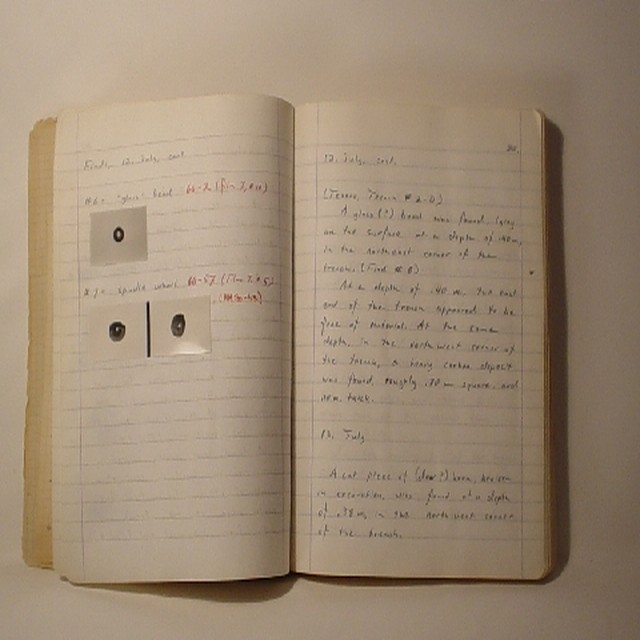 Finds, 12. July, cont.
#6 = "glass" bead 66-2
#7 = spindle whorl 66-57
12. July, cont.
A glass(?) bead was found, lying
on the surface at a depth of .40m,
in the northeast corner of the
trench. (Find #6)
At a depth of .40 m, the east
end of the trench appeared to be
free of material. At the same
depth, in the northwest corner of
the trench, a heavy carbon deposit
was found, roughly .70m square, and
thick.
13. July
A cut piece of (deer?) horn, broken
in excavation, was found at a depth
of .38m in the northwest corner
of the trench.